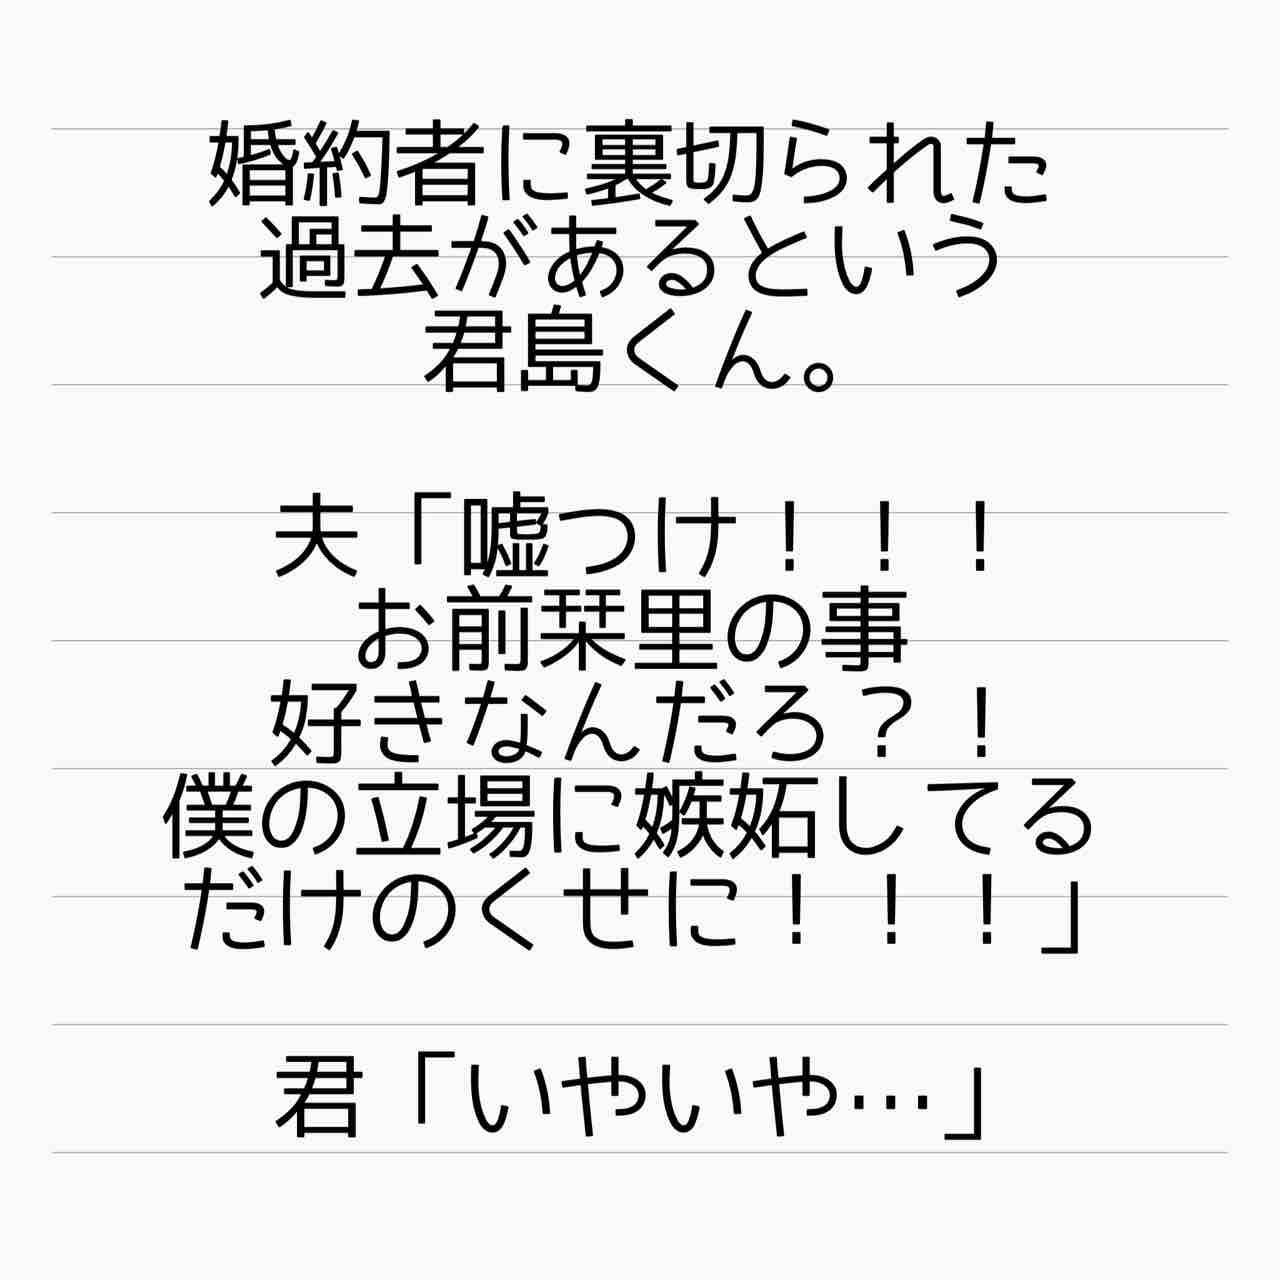 婚約者に裏切られた
過去があるという
君島くん。
夫「嘘つけ！！！
お前栞里の事
好きなんだろ？！
僕の立場に嫉妬してる
だけのくせに！！！」
君「いやいや…」